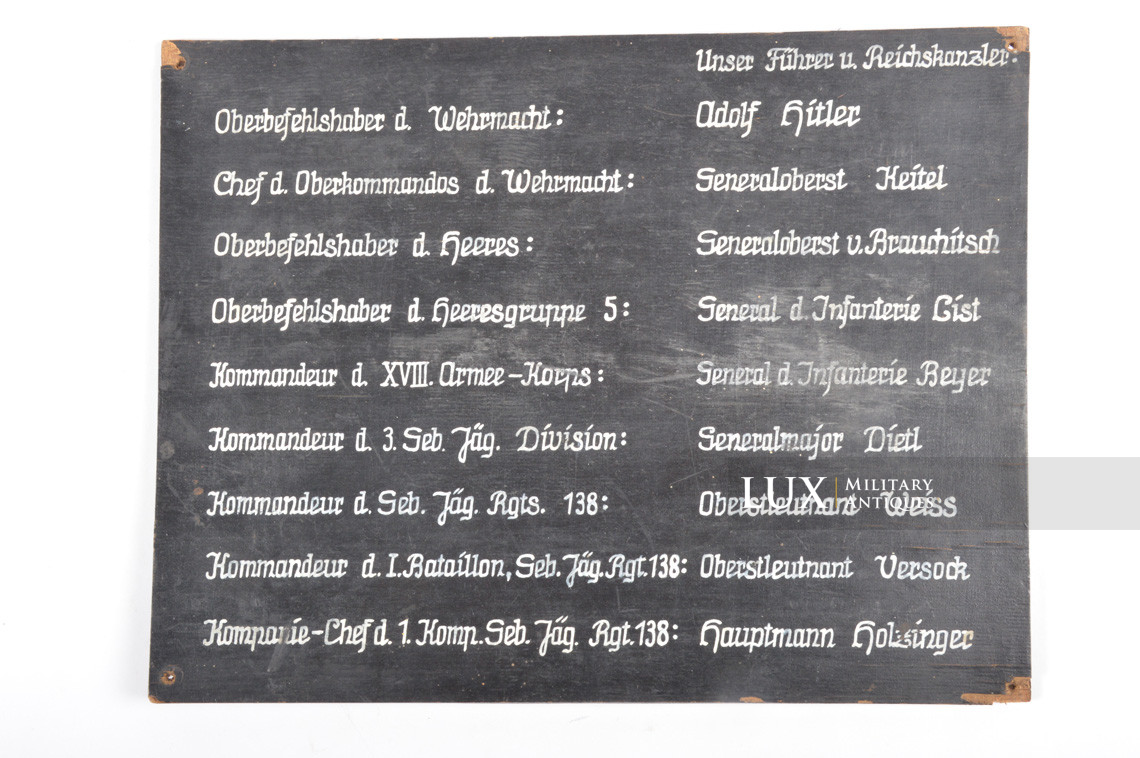 Unser Führer u. Reichskanzler:
Oberbefehlshaber d. Wehrmacht: Adolf Hitler
Chef d. Oberkommandos d. Wehrmacht: Generaloberst Keitel
Oberbefehlshaber d. Heeres: Generaloberst v. Brauchitsch
Oberbefehlshaber d. Heeresgruppe 5: General d. Infanterie List
Kommandeur d. XVIII. Armee-Korps: General d. Infanterie Beyer
Kommandeur d. 3. Geb. Jäg. Division: Generalmajor Dietl
Kommandeur d. Geb. Jäg. Rgts. 138: Oberstleutnant Weiss
LUX MILITARY ANTIQUES
Kommandeur d. I. Bataillon, Geb. Jäg. Rgt. 138: Oberstleutnant Versock
Kompanie-Chef d. 1. Komp. Geb. Jäg. Rgt. 138: Hauptmann Holzinger